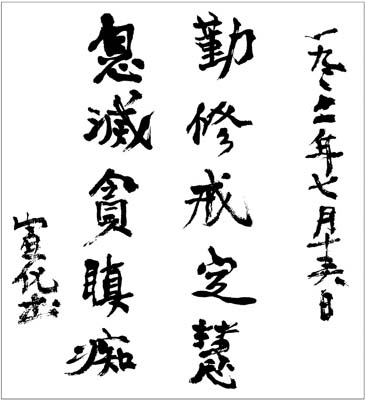 一九年七月十日
勤修戒定慧
息滅貪瞋痴
宣化